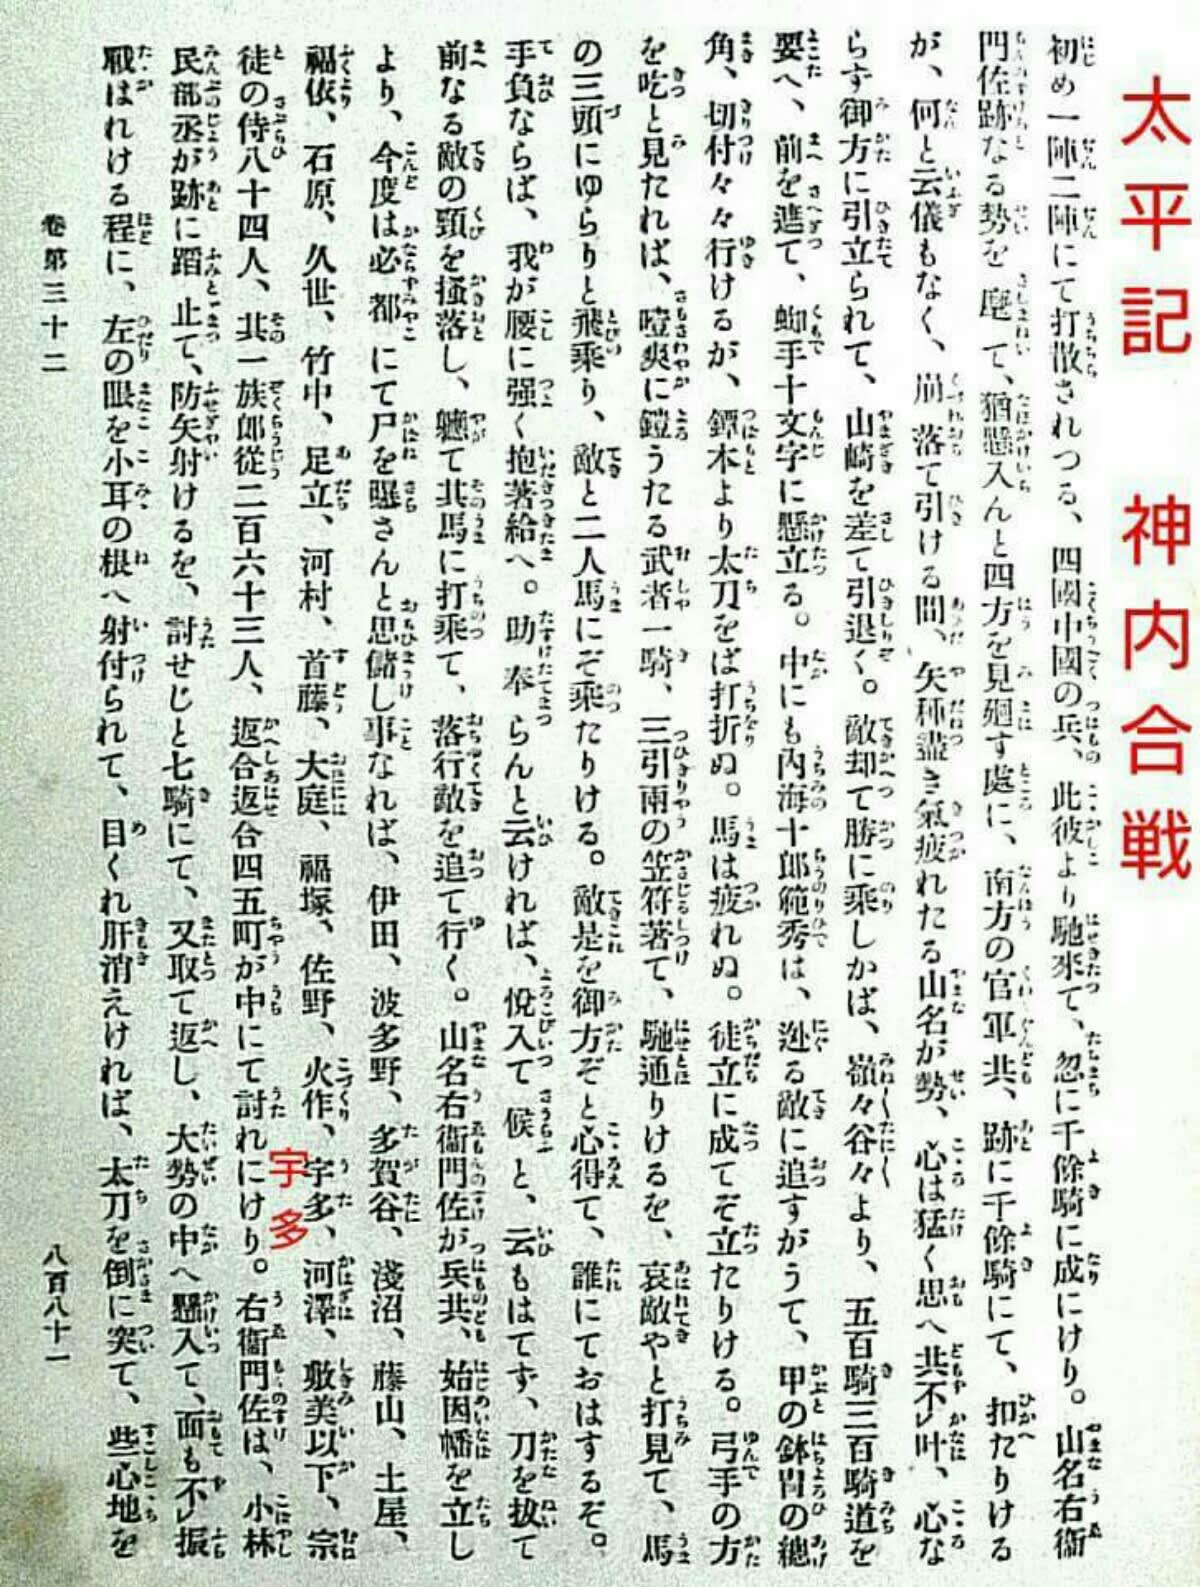 太平記　神内合戦
初め一陣二陣にて打散されつる、四國中國の兵、此彼より馳來て、忽に千餘騎に成にけり。山名右衞
門佐跡なる勢を麾て、猶懸入んと四方を見廻す處に、南方の官軍共、跡に千餘騎にて、扣たりける
が、何と云儀もなく、崩落て引ける間、矢種盡き氣疲れたる山名が勢、心は猛く思へ共不叶、心な
らず御方に引立られて、山崎を差て引退く。敵却て勝に乘しかば、嶺々谷々より、五百騎三百騎道を
要へ、前を遮て、蜘手十文字に懸立る。中にも内海十郎範秀は、迯る敵に追すがうて、甲の鉢冑の總
角、切付々々行けるが、鐔本より太刀をば打折ぬ。馬は疲れぬ。徒立に成てぞ立たりける。弓手の方
を吃と見たれば、噎爽に鎧うたる武者一騎、三引兩の笠符著て、馳通りけるを、哀敵やと打見て、馬
の三頭にゆらりと飛乘り、敵と二人馬にぞ乘たりける。敵是を御方ぞと心得て、誰にておはするぞ。
手負ならば、我が腰に强く抱著給へ。助奉らんと云ければ、悅入て候と、云もはてず、刀を拔て
前なる敵の頸を搔落し、軈て其馬に打乘て、落行敵を追て行く。山名右衞門佐が兵共、始因幡を立し
より、今度は必都にて尸を曝さんと思儲し事なれば、伊田、波多野、多賀谷、淺沼、藤山、土屋、
福依、石原、久世、竹中、足立、河村、首藤、大庭、福塚、佐野、火作、宇多、河澤、敷美以下、宗
宇多
徒の侍八十四人、其一族郎從二百六十三人、返合返合四五町が中にて討れにけり。右衞門佐は、小林
民部丞が跡に蹈止て、防矢射けるを、討せじと七騎にて、又取て返し、大勢の中へ懸入て、面も不振
戰はれける程に、左の眼を小耳の根へ射付られて、目くれ肝消えければ、太刀を倒に突て、些心地を
卷第三十二
八百八十一